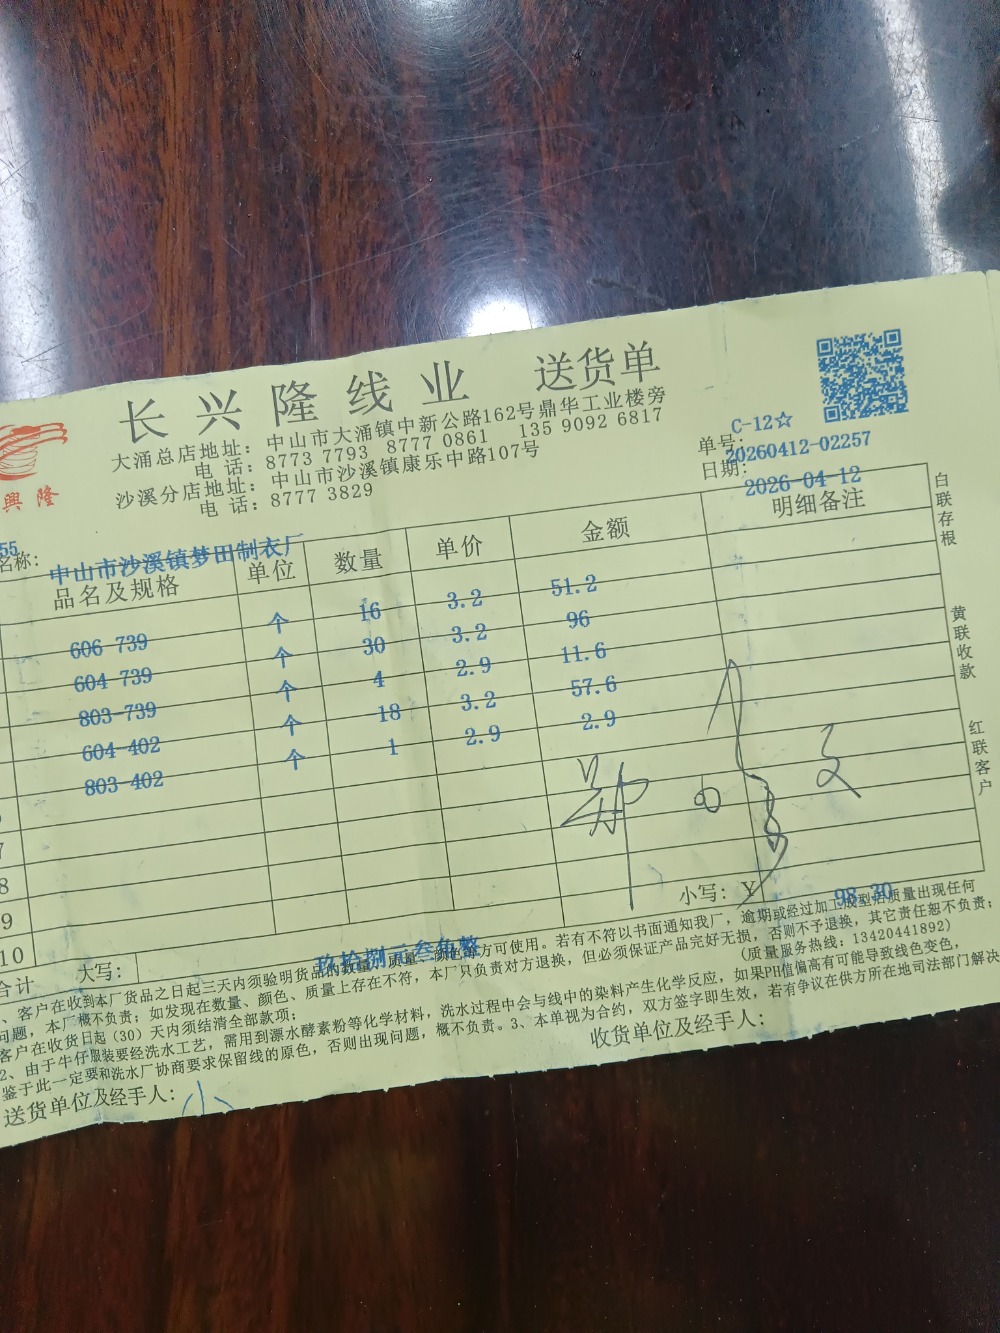 长兴隆线业 送货单
大涌总店地址：中山市大涌镇中新公路162号鼎华工业楼旁
电 话：8773 7793 8777 0861 135 9092 6817
沙溪分店地址：中山市沙溪镇康乐中路107号
电 话：8777 3829
興 隆
C-12☆
单号：20260412-02257
日期：2026-04-12
55
名称：中山市沙溪镇梦田制衣厂
品名及规格 单位 数量 单价 金额 明细备注
606-739 个 16 3.2 51.2
604-739 个 30 3.2 96
803-739 个 4 2.9 11.6
604-402 个 18 3.2 57.6
803-402 个 1 2.9 2.9
7
8
9
10
合计 大写： 玖拾捌元叁角整 小写：Y 98.30
白联存根
黄联收款
红联客户
、客户在收到本厂货品之日起三天内须验明货品的数量、质量、颜色等方可使用。若有不符以书面通知我厂，逾期或经过加工成型后质量出现任何
问题，本厂概不负责；如发现在数量、颜色、质量上存在不符，本厂只负责对方退换，但必须保证产品完好无损，否则不予退换，其它责任恕不负责；
客户在收货日起（30）天内须结清全部款项； （质量服务热线：13420441892）
2、由于牛仔服装要经洗水工艺，需用到漂水酵素粉等化学材料，洗水过程中会与线中的染料产生化学反应，如果PH值偏高有可能导致线色变色，
鉴于此一定要和洗水厂协商要求保留线的原色，否则出现问题，概不负责。3、本单视为合约，双方签字即生效，若有争议在供方所在地司法部门解决
送货单位及经手人：小 收货单位及经手人：